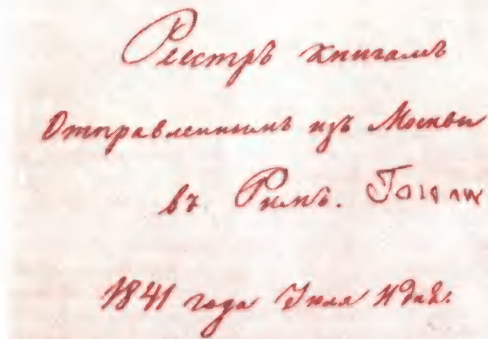 Реестръ книгамъ
Отправленнымъ изъ Москвы
въ Римъ.
1841 года Июля